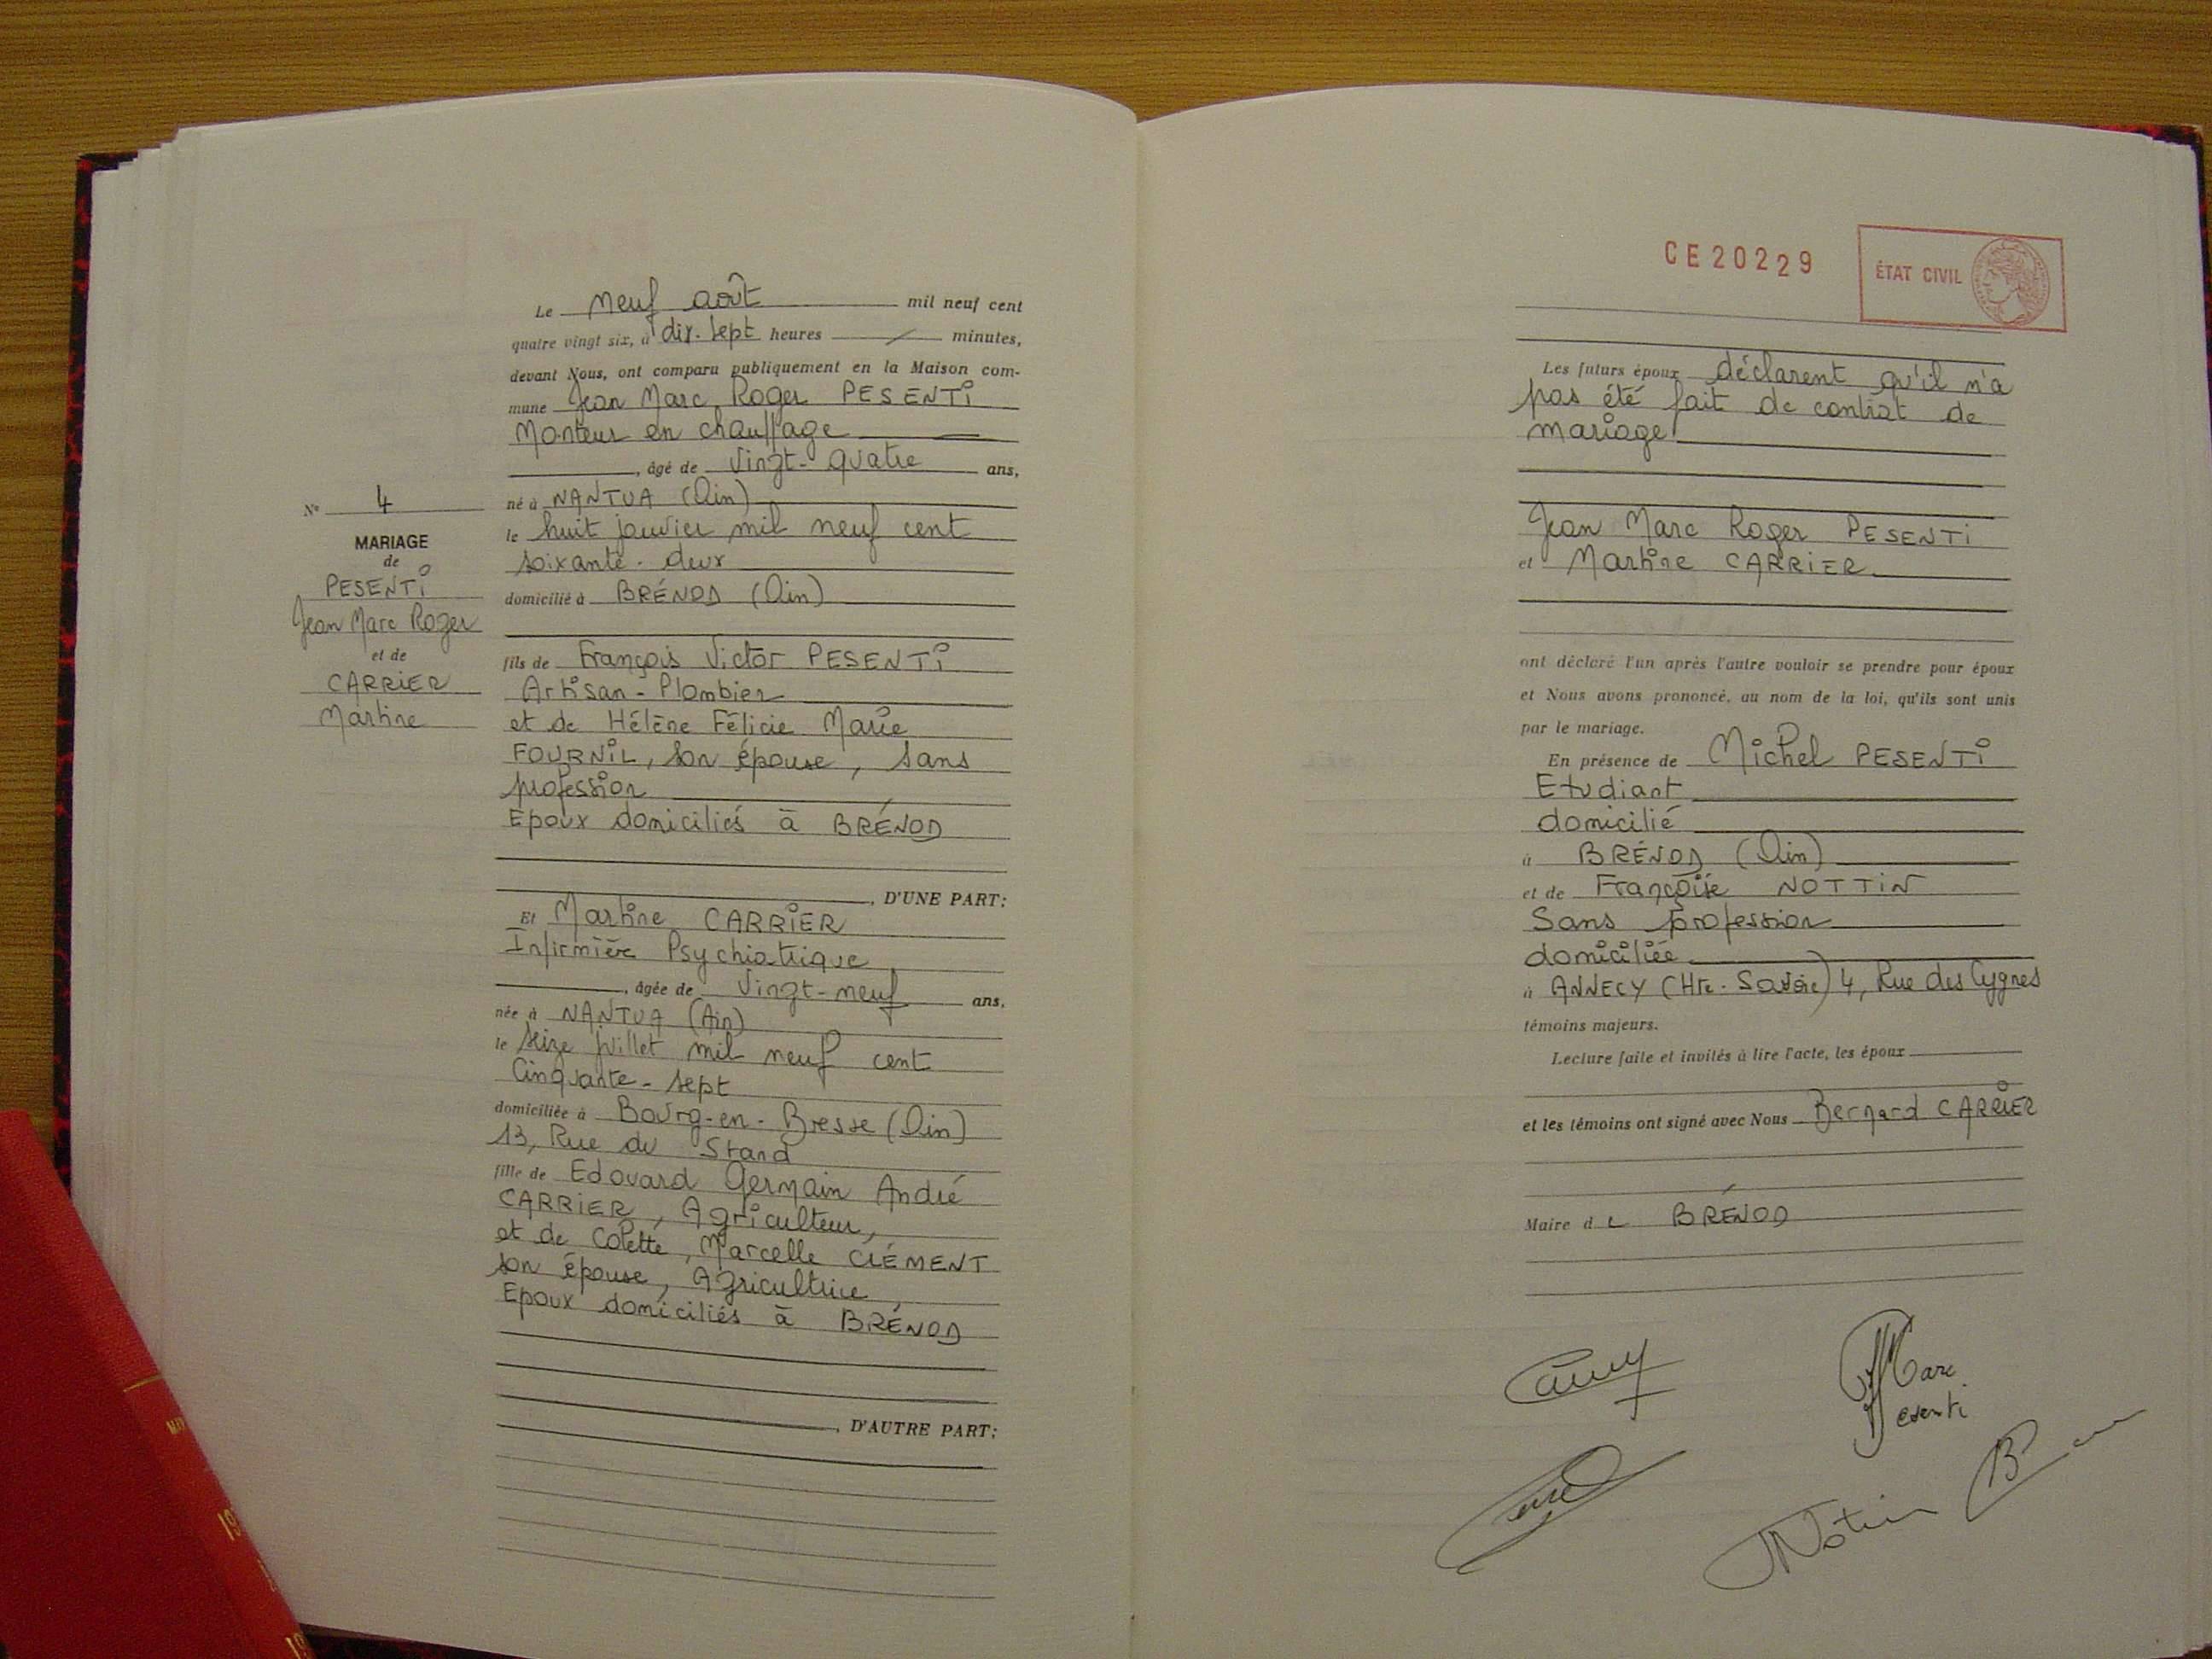 Le neuf août mil neuf cent
quatre vingt six, à dix-sept heures / minutes,
devant Nous, ont comparu publiquement en la Maison com-
mune Jean Marc Roger PESENTi
Monteur en chauffage
, âgé de Vingt-quatre ans,
né à NANTUA (Ain)
le huit janvier mil neuf cent
soixante-deux
domicilié à BRÉNOD (Ain)
fils de François Victor PESENTi
Artisan-Plombier
et de Hélène Félicie Marie
FOURNiL, son épouse, sans
profession
Epoux domiciliés à BRÉNOD
, D'UNE PART;
Et Martine CARRiER
Infirmière Psychiatrique
, âgée de Vingt-neuf ans,
née à NANTUA (Ain)
le seize juillet mil neuf cent
Cinquante-sept
domiciliée à Bourg-en-Bresse (Ain)
13, Rue du Stand
fille de Edouard Germain André
CARRiER, Agriculteur,
et de Colette, Marcelle CLÉMENT
son épouse, Agricultrice,
Epoux domiciliés à BRÉNOD
, D'AUTRE PART;
N° 4
MARIAGE
de
PESENTi
Jean Marc Roger
et de
CARRiER
Martine
CE20229
ÉTAT CIVIL
Les futurs époux déclarent qu'il n'a
pas été fait de contrat de
mariage
Jean Marc Roger PESENTi
et Martine CARRiER
ont déclaré l'un après l'autre vouloir se prendre pour époux
et Nous avons prononcé, au nom de la loi, qu'ils sont unis
par le mariage.
En présence de Michel PESENTi
Etudiant
domicilié
à BRÉNOD (Ain)
et de Françoise NOTTiN
Sans profession
domiciliée
à ANNECY (Hte-Savoie) 4, Rue des Cygnes
témoins majeurs.
Lecture faite et invités à lire l'acte, les époux
et les témoins ont signé avec Nous Bernard CARRiER
Maire de BRÉNOD
Marc
Pesenti
Nottin